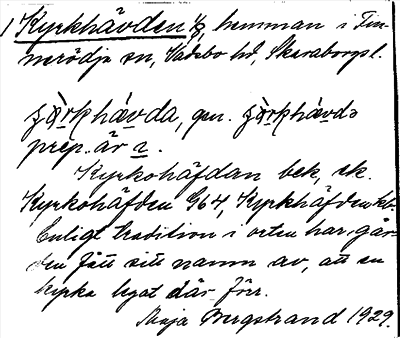 1 Kyrkhävden 1/3, hemman i Fin-
nerödja sn, Vadsbo hd, Skaraborgs l.
prep. är i.
Kyrkohäfdan bek, ek.
Kyrkohäfden G64, Kyrkhäfden kt.
Enligt tradition i orten har går-
den fått sitt namn av, att en
kyrka legat där förr.
Maja Bergstrand 1929.